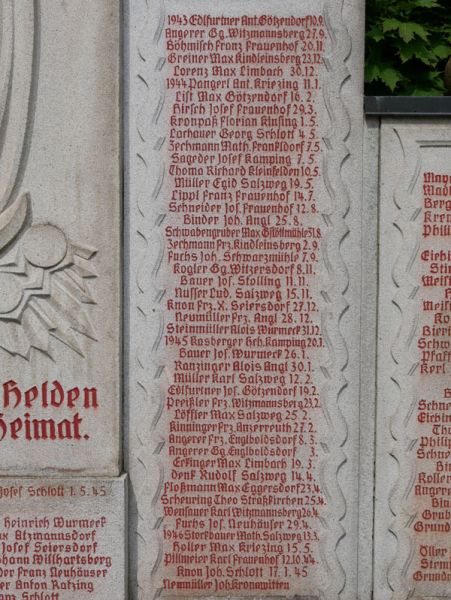 1943 Edlfurtner Ant. Götzendorf 10.9.
Angerer Gg. Witzmannsberg 27.9.
Böhmisch Franz Frauenhof 20.11.
Greiner Max Kindleinsberg 23.12.
Lorenz Max Limbach 30.12.
1944 Pangerl Ant. Kriezing 11.1.
List Max Götzendorf 16.2.
Hirsch Josef Frauenhof 29.3.
Kronpaß Florian Kinsing 1.5.
Lachauer Georg Schlott 4.5.
Zechmann Math. Frankldorf 7.5.
Sageder Josef Kamping 7.5
Thoma Richard Kleinfelden 10.5.
Müller Egid Salzweg 19.5.
Lippl Franz Frauenhof 14.7.
Schneider Jos. Frauenhof 12.8.
Binder Joh. Angl 25.8.
Schwabengruber Max 31.8
Zechmann Frz. Kindleinsberg 2.9.
Fuchs Joh. Schwarzmühle 7.9.
Kogler Gg. Witzersdorf 8.11.
Bauer Jos. Stolling 11.11.
Nusser Lud. Salzweg 15.11.
Knon Frz. X. Seiersdorf 27.12.
Neumüller Frz. Angl 28.12.
Steinmüller Alois Wurmeck 31.12.
1945 Kasberger Hch. Kamping 20.1.
Bauer Jos. Wurmeck 26.1.
Ranzinger Alois Angl 30.1.
Müller Karl Salzweg 12.2.
Edlfurtner Jos. Götzendorf 19.2.
Preißler Frz. Witzmannsberg 23.2.
Löffler Max Salzweg 25.2.
Kinninger Frz. Anzerreuth 27.2.
Angerer Frz. Englboldsdorf 8.3.
Angerer Gg. Englboldsdorf 3.
Erkinger Max Limbach 19.3.
Denk Rudolf Salzweg 14.4.
Floßmann Max Eggersdorf 23.4.
Scheuring Theo Straßkirchen 25.4.
Wensauer Karl Witzmannsberg 26.4.
Fuchs Jos. Neuhäuser 29.4.
1946 Storkbauer Math. Salzweg 13.3.
Holler Max Kriezing 15.5.
Pillmeier Karl Frauenhof 12.10.44.
Knon Joh. Schlott 17.1.45
Neumüller Joh. Kronawitten
Helden
Heimat.
Josef Schlott 1.5.45
Heinrich Wurmeck
Max Atzmannsdorf
Josef Seiersdorf
Johann Willhartsberg
Franz Neuhäuser
Anton Ratzing
Franz Schlott